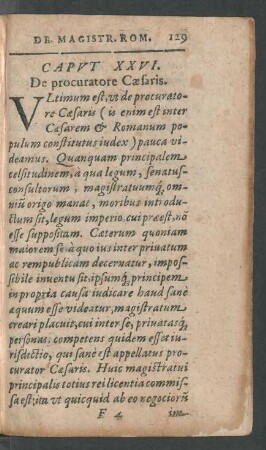 DE MAGISTR. ROM. 129
CAPVT XXVI.
De procuratore Cæsaris.
VLtimum est, vt de procurato-
re Cæsaris (is enim est inter
Cæsarem & Romanum po-
pulum constitutus iudex) pauca vi-
deamus. Quanquam principalem
celsitudinem, à qua legum, senatus-
consultorum, magistratuumq́, om-
niũ origo manat, moribus introdu-
ctum sit, legum imperio cui præest, nõ
esse suppositam. Cæterum quoniam
maiorem se à quo ius inter priuatum
ac rempublicam decernatur, impos-
sibile inuentu sit ipsumq́, principem
in propria causa iudicare haud sanè
æquum esse videatur, magistratum
creari placuit, cui inter se, priuatasq́,
personas, competens quidem esset iu-
risdictio, qui sanè est appellatus pro-
curator Cæsaris. Huic magistratui
principalis totius rei licentia commis-
sa est: ita vt quicquid ab eo negociorũ
F 4 im-